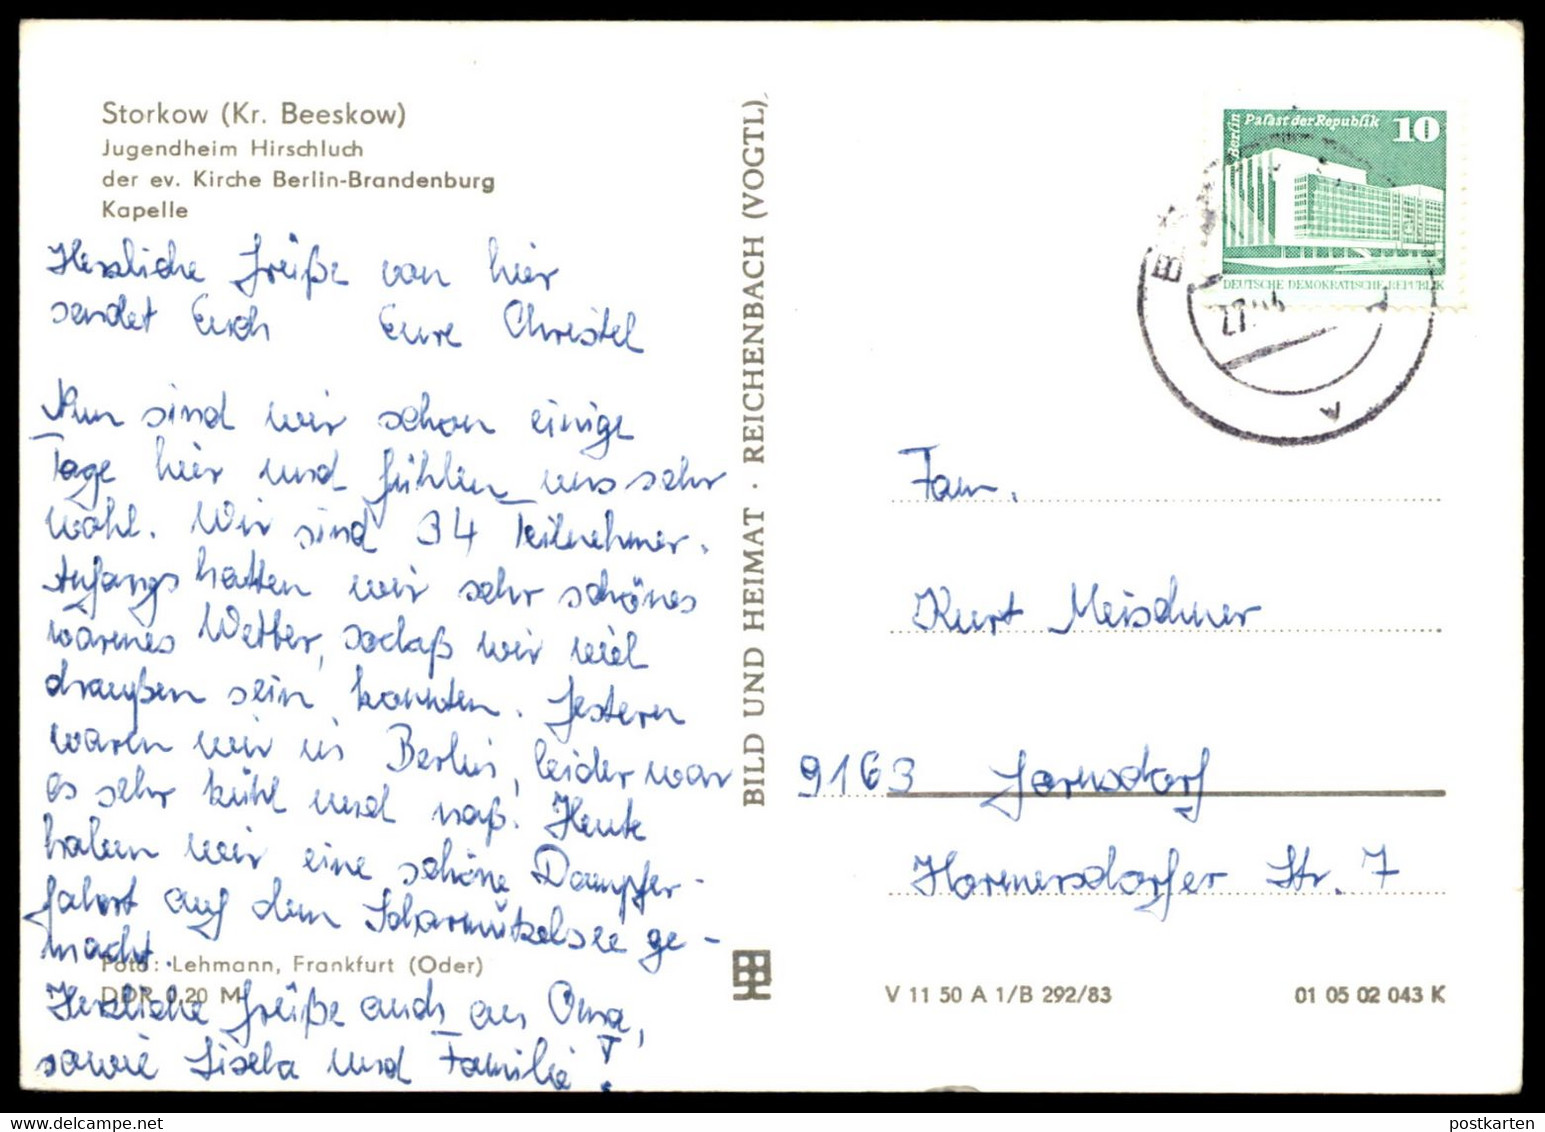 Storkow (Kr. Beeskow)
Jugendheim Hirschluch
der ev. Kirche Berlin-Brandenburg
Kapelle
Herzliche Grüße von hier
sendet Euch Eure Christel
Nun sind wir schon einige
Tage hier und fühlen uns sehr
wohl. Wir sind 34 Teilnehmer.
Anfangs hatten wir sehr schönes
warmes Wetter, sodaß wir viel
draußen sein konnten. Gestern
waren wir in Berlin, leider war
es sehr kühl und naß. Heute
haben wir eine schöne Dampfer-
fahrt auf dem Scharmützelsee ge-
macht.
Foto: Lehmann, Frankfurt (Oder)
DDR 0,20 M
Herzliche Grüße auch an Oma,
sowie Gisela und Familie!
BILD UND HEIMAT · REICHENBACH (VOGTL)
Berlin
Palast der Republik 10
DEUTSCHE DEMOKRATISCHE REPUBLIK
Fam.
Kurt Meischner
9163 Gornsdorf
Hormersdorfer Str. 7
V 11 50 A 1/B 292/83
01 05 02 043 K
postkarten